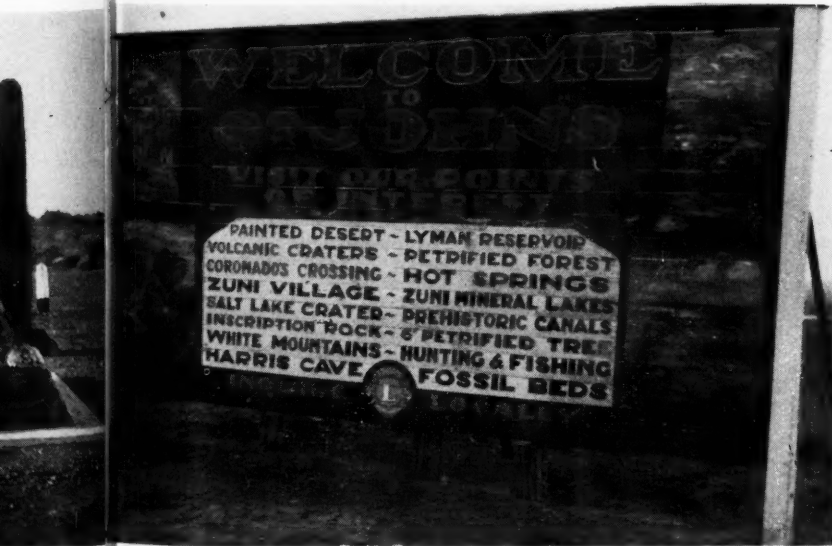 WELCOME
TO
ST. JOHNS
VISIT OUR POINTS
OF INTEREST
PAINTED DESERT ~ LYMAN RESERVOIR
VOLCANIC CRATERS ~ PETRIFIED FOREST
CORONADO'S CROSSING ~ HOT SPRINGS
ZUNI VILLAGE ~ ZUNI MINERAL LAKES
SALT LAKE CRATER ~ PREHISTORIC CANALS
INSCRIPTION ROCK ~ 6' PETRIFIED TREE
WHITE MOUNTAINS ~ HUNTING & FISHING
HARRIS CAVE L FOSSIL BEDS